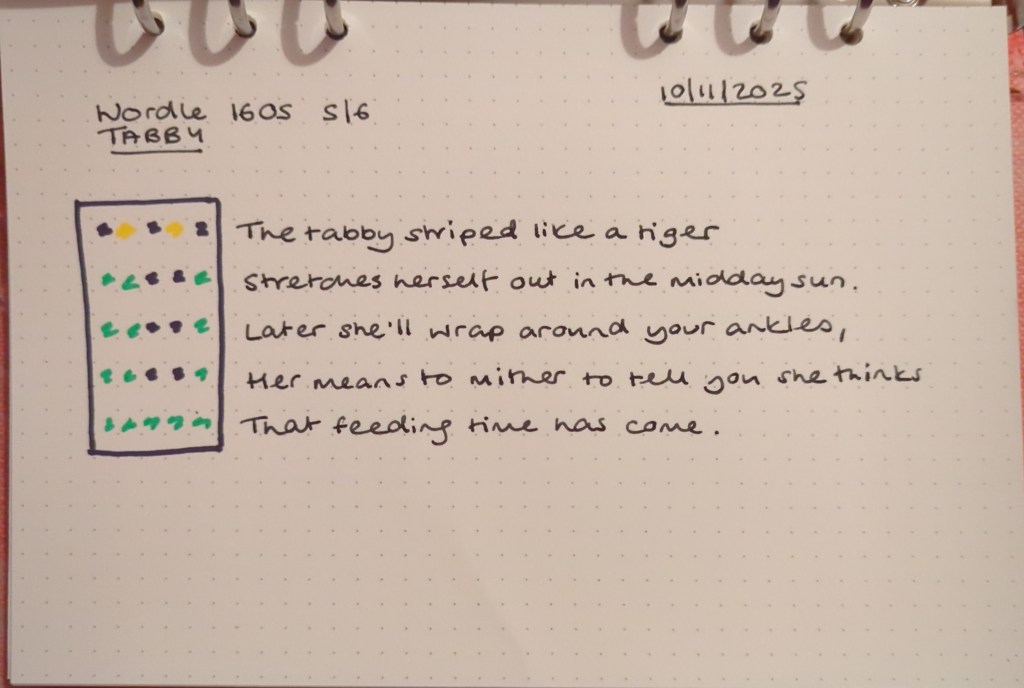 Wordle 1605 5/6
10/11/2025
TABBY
The tabby striped like a tiger
Stretches herself out in the midday sun.
Later she'll wrap around your ankles,
Her means to mither to tell you she thinks
That feeding time has come.